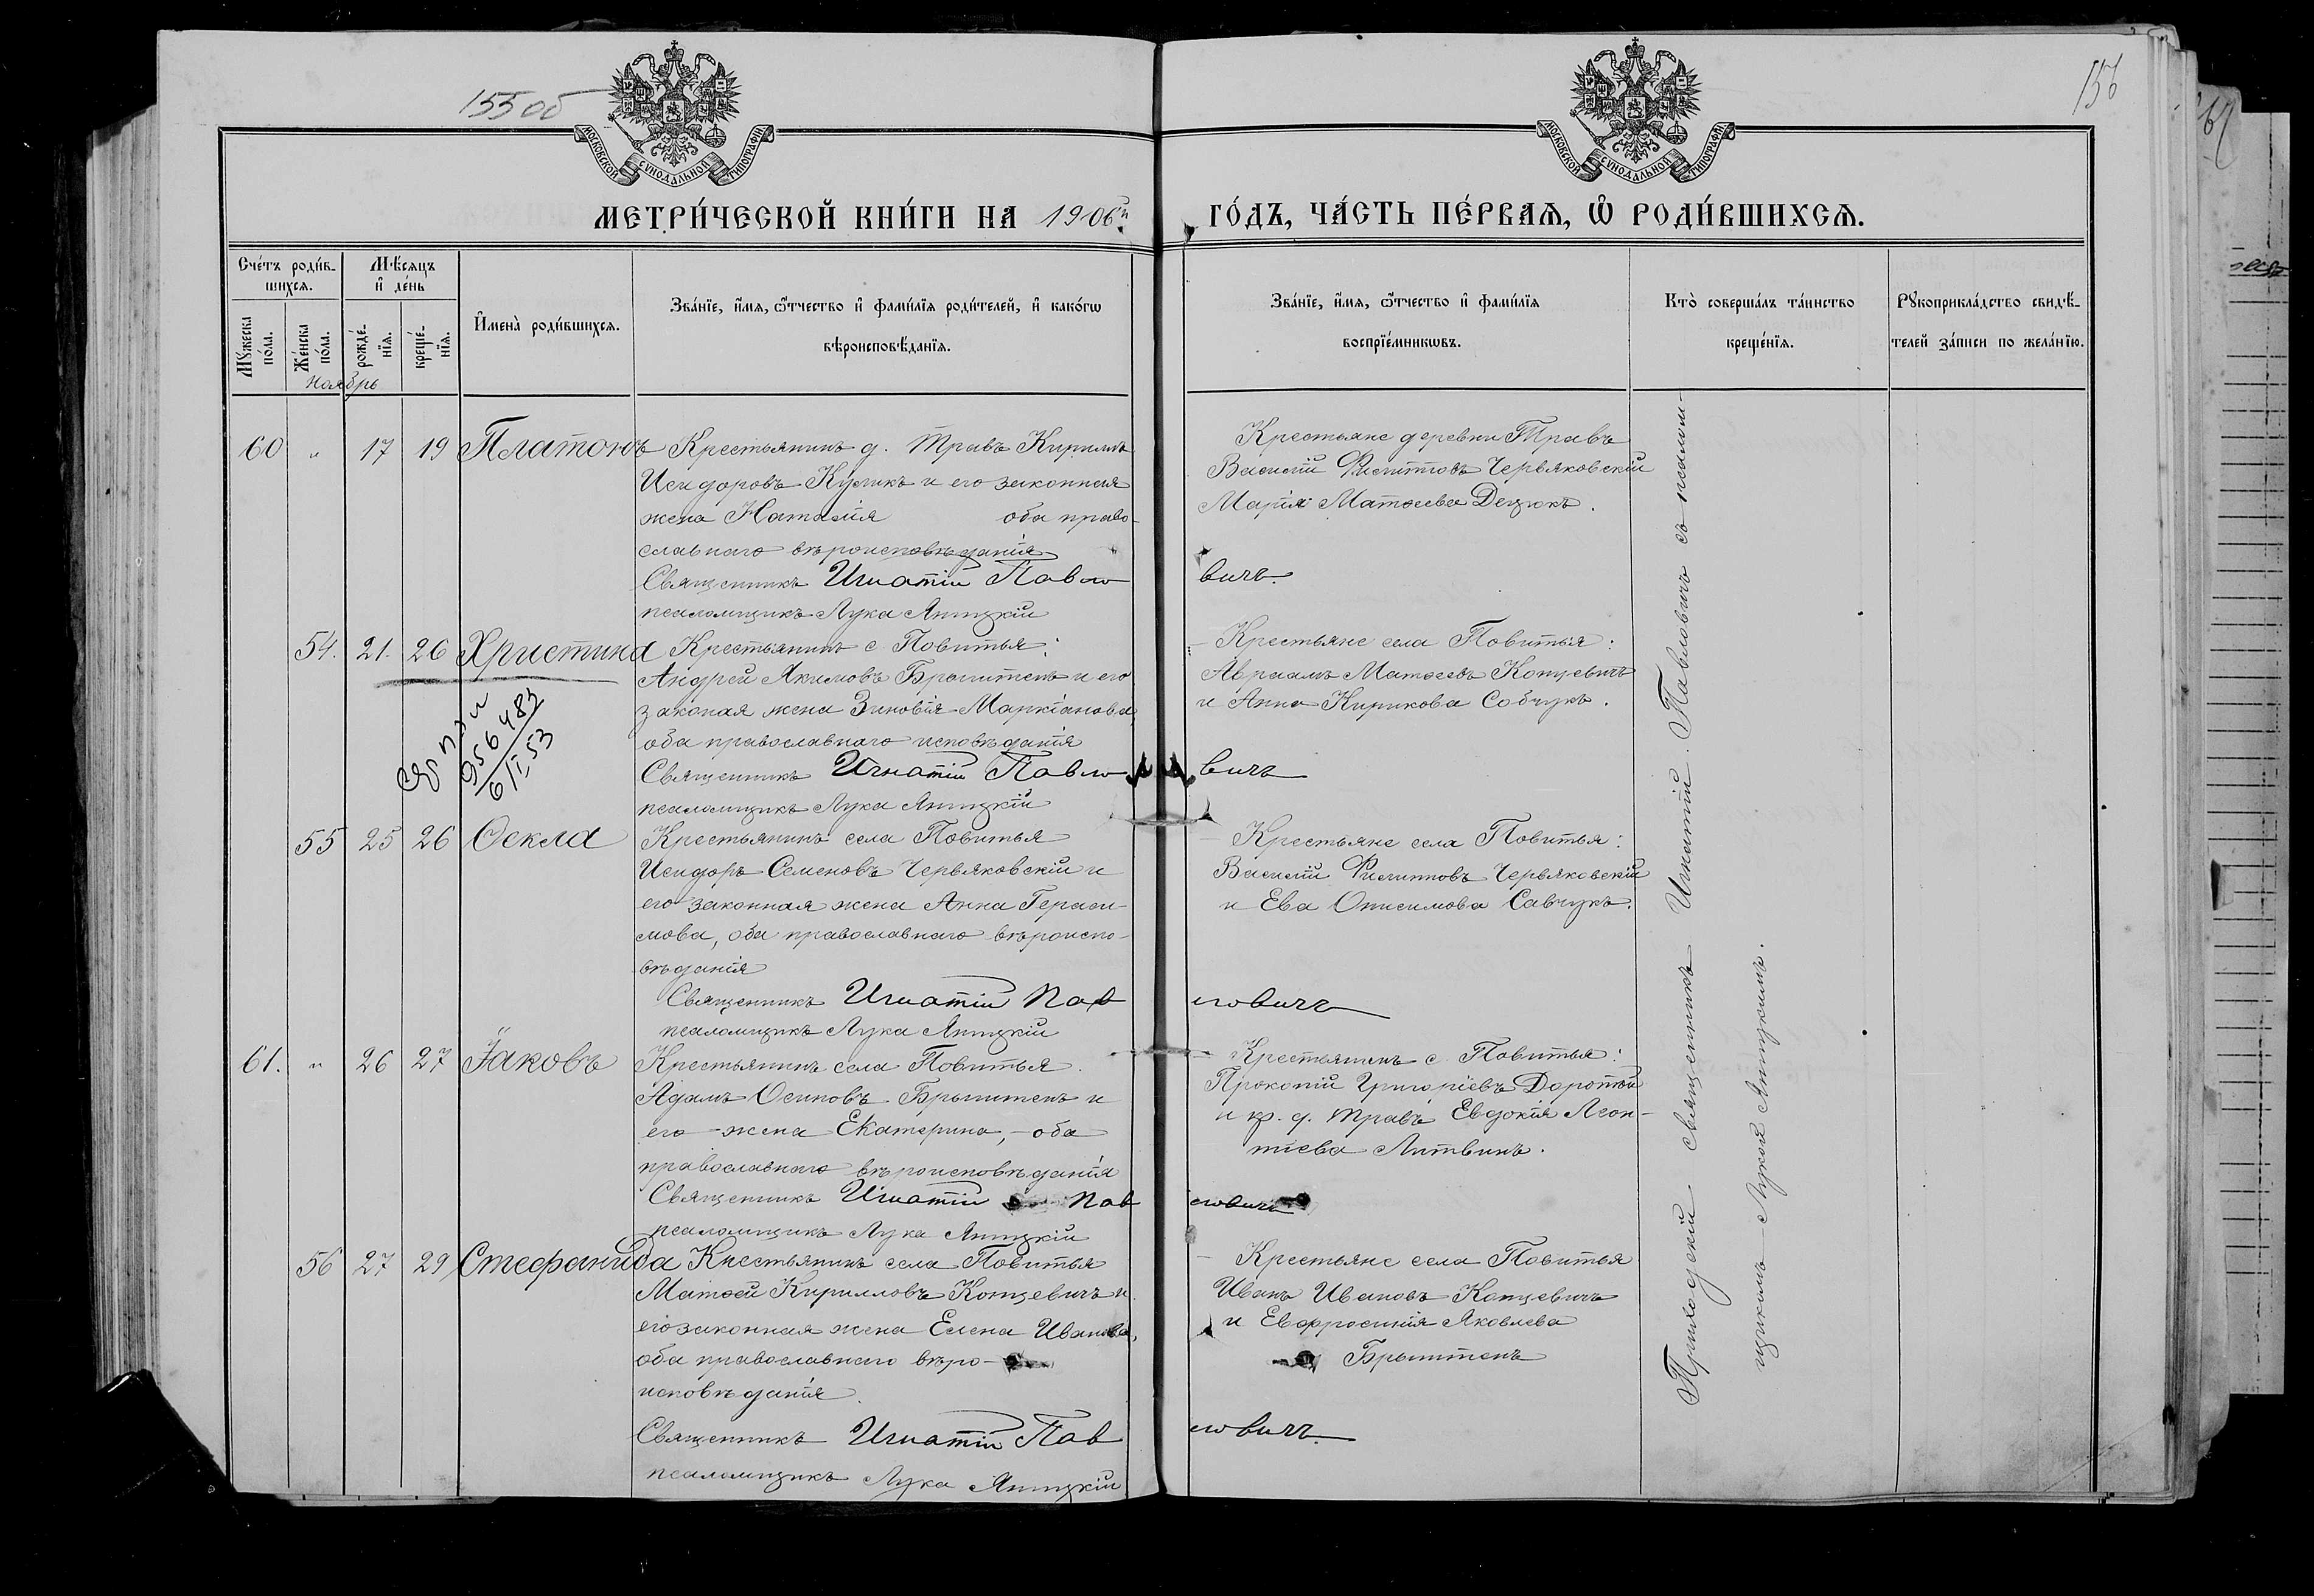 155 об
156
МОСКОВСКОЙ СѴНОДАЛЬНОЙ ТИПОГРАФІИ
МОСКОВСКОЙ СѴНОДАЛЬНОЙ ТИПОГРАФІИ
МЕТРИ́ЧЕСКОЙ КНИ́ГИ НА 1906й ГО́ДЪ, ЧА́СТЬ ПЕ́РВАѦ, Ѽ РОДИ́ВШИХСѦ.
Сче́тъ роди́в-
шихсѧ.
Мꙋ́жеска по́ла.
Же́нска по́ла.
Мѣ́сѧцъ и҆ де́нь
рожде́-
нїѧ.
креще́-
нїѧ.
И҆мена̀ роди́вшихсѧ.
Зва́нїе, и҆́мѧ, ѻ҆́тчество и҆ фами́лїѧ роди́телей, и҆ како́гѡ
вѣроисповѣ́данїѧ.
Зва́нїе, и҆́мѧ, ѻ҆́тчество и҆ фами́лїѧ
воспрїе́мникѡвъ.
Кто̀ соверша́лъ та́инство
креще́нїѧ.
Рꙋкоприкла́дство свидѣ́-
телей за́писи по жела́нїю.
Ноябрь
60 " 17 19 Платонъ
Крестьянинъ д. Травъ Кириллъ
Исидоровъ Куликъ и его законная
жена Наталія оба право-
славнаго вѣроисповѣданія
Священникъ Игнатій Павловичъ
псаломщикъ Лука
Крестьяне деревни Травъ
Василій Филипповъ Червяковскій
Марія Матѳеева Децюкъ.
54. 21. 26 Христина
Крестьянинъ с. Повитья:
Андрей Акимовъ Брынтенъ и его
законая жена Зиновія Маркіанова,
оба православнаго исповѣданія
Священникъ Игнатій Павловичъ
псаломщикъ Лука
Крестьяне села Повитья:
Авраамъ Матѳеевъ Концевичъ
и Анна Кирикова Собчукъ.
956482
6/II,53
55 25 26 Ѳекла
Крестьянинъ села Повитья
Исидоръ Семеновъ Червяковскій и
его законная жена Анна Гераси-
мова, оба православнаго вѣроиспо-
вѣданія
Священникъ Игнатій Павловичъ
псаломщикъ Лука
Крестьяне села Повитья:
Василій Филипповъ Червяковскій
и Ева Онисимова Савчукъ.
61. " 26 27 Іаковъ
Крестьянинъ села Повитья.
Адамъ Осиповъ Брынтенъ и
его жена Екатерина, – оба
православнаго вѣроисповѣданія
Священникъ Игнатій Павловичъ
псаломщикъ Лука
Крестьянинъ с. Повитья:
Прокопій Григоріевъ
и кр. д. Травъ Евдокія Леон-
тіева Литвинъ.
56 27 29 Стефанида
Крестьянинъ села Повитья
Матѳей Кирилловъ Концевичъ и
его законная жена Елена Иванова,
оба православнаго вѣро-
исповѣданія.
Священникъ Игнатій Павловичъ.
псаломщикъ Лука
Крестьяне села Повитья
Иванъ Ивановъ Концевичъ
и Евфросинія Яковлева
Брынтенъ
Приходскій священникъ Игнатій Павловичъ съ псалом-
щикомъ Лукой